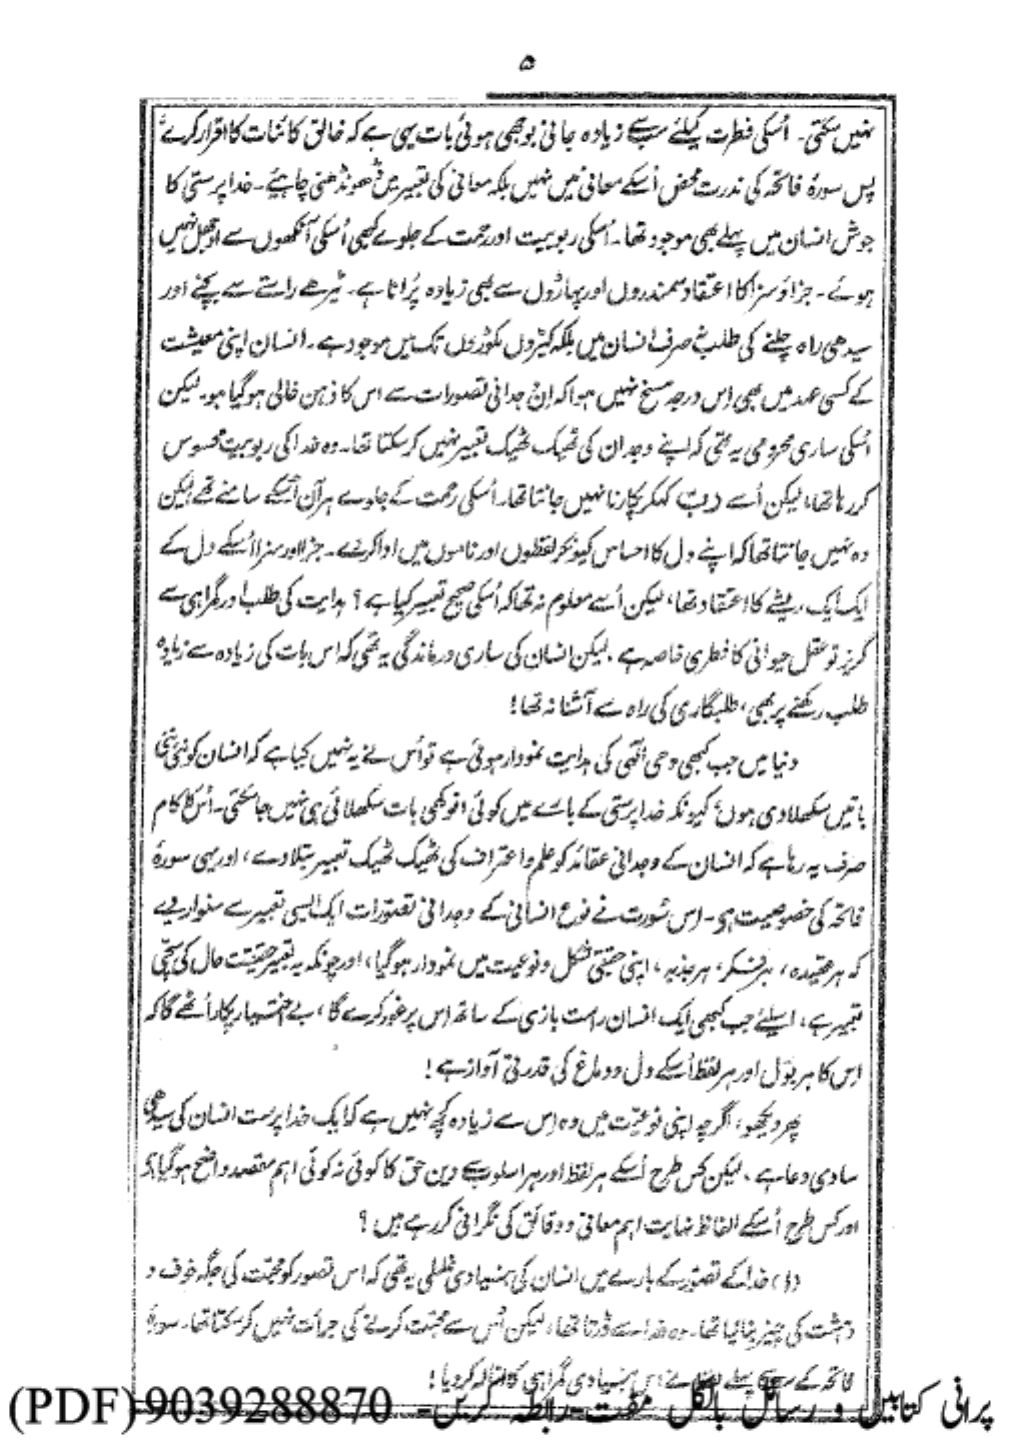 ۵
نہیں سکتی۔ اُسکی فطرت کیلئے سب سے زیادہ جانی بوجھی ہوئی بات یہی ہے کہ خالق کائنات کا اقرار کرے
پس سورۂ فاتحہ کی ندرت محض اُسکے معانی میں نہیں بلکہ معانی کی تعبیر میں ڈھونڈھنی چاہیئے۔ خدا پرستی کا
جوش انسان میں پہلے بھی موجود تھا۔ اُسکی ربوبیت اور رحمت کے جلوے کبھی اُسکی آنکھوں سے اوجھل نہیں
ہوئے۔ جزا و سزا کا اعتقاد سمندروں اور پہاڑوں سے بھی زیادہ پُرانا ہے۔ ٹیڑھے راستے سے بچنے اور
سیدھی راہ چلنے کی طلب نہ صرف انسان میں بلکہ کیڑوں مکوڑوں تک میں موجود ہے۔ انسان اپنی معیشت
کے کسی عہد میں بھی اِس درجہ مسخ نہیں ہوا کہ اِن وجدانی تصورات سے اس کا ذہن خالی ہوگیا ہو۔ لیکن
اُسکی ساری محرومی یہ تھی کہ اپنے وجدان کی ٹھیک ٹھیک تعبیر نہیں کرسکتا تھا۔ وہ خدا کی ربوبیت محسوس
کر رہا تھا، لیکن اُسے رب کہکر پکارنا نہیں جانتا تھا۔ اُسکی رحمت کے جلوے ہر آن اُسکے سامنے تھے لیکن
وہ نہیں جانتا تھا کہ اپنے دل کا احساس کیونکر لفظوں اور ناموں میں ادا کرے۔ جزا اور سزا اُسکے دل کے
ایک ایک ریشے کا اعتقاد تھا، لیکن اُسے معلوم نہ تھا کہ اُسکی صحیح تعبیر کیا ہے؟ ہدایت کی طلب اور گمراہی سے
گریز تو عقل حیوانی کا فطری خاصہ ہے۔ لیکن انسان کی ساری درماندگی یہ تھی کہ اس بات کی زیادہ سے زیادہ
طلب رکھنے پر بھی، طلبگاری کی راہ سے آشنا نہ تھا!
دنیا میں جب کبھی وحی الٰہی کی ہدایت نمودار ہوئی ہے تو اُس نے یہ نہیں کیا ہے کہ انسان کو نئی نئی
باتیں سکھلادی ہوں، کیونکہ خدا پرستی کے بارے میں کوئی انوکھی بات سکھلائی ہی نہیں جاسکتی۔ اُس کا کام
صرف یہ رہا ہے کہ انسان کے وجدانی عقائد کو علم و اعتراف کی ٹھیک ٹھیک تعبیر بتلا دے، اور یہی سورۂ
فاتحہ کی خصوصیت ہے۔ اس سُورت نے نوع انسانی کے وجدانی تصوّرات ایک ایسی تعبیر سے سنوار دیے
کہ ہر عقیدہ، ہر فکر، ہر جذبہ، اپنی حقیقی شکل و نوعیت میں نمودار ہوگیا، اور چونکہ یہ تعبیر حقیقت حال کی سچی
تعبیر ہے، اسلئے جب کبھی ایک انسان راست بازی کے ساتھ اس پر غور کرے گا، بے اختیار پکار اُٹھے گا کہ
اِس کا ہر بول اور ہر لفظ اُسکے دل و دماغ کی قدرتی آواز ہے!
پھر دیکھو، اگرچہ اپنی نوعیت میں وہ اِس سے زیادہ کچھ نہیں ہے کہ ایک خدا پرست انسان کی سیدھی
سادی دعا ہے، لیکن کس طرح اُسکے ہر لفظ اور ہر اسلوب سے دین حق کا کوئی نہ کوئی اہم مقصد واضح ہوگیا ہے
اور کس طرح اُسکے الفاظ نہایت اہم معانی و دقائق کی نگرانی کر رہے ہیں؟
(۱) خدا کے تصوّر کے بارے میں انسان کی بنیادی غلطی یہ تھی کہ اس تصور کو محبّت کی جگہ خوف و
دہشت کی چیز بنالیا تھا۔ وہ خدا سے ڈرتا تھا، لیکن اُس سے محبّت کرنے کی جرأت نہیں کرسکتا تھا۔ سورۂ
فاتحہ کے سب سے پہلے لفظ نے اس بنیادی گمراہی کا ازالہ کردیا!
پرانی کتابیں و رسائل بالکل مفت رابطہ کریں۔ 9039288870(PDF)